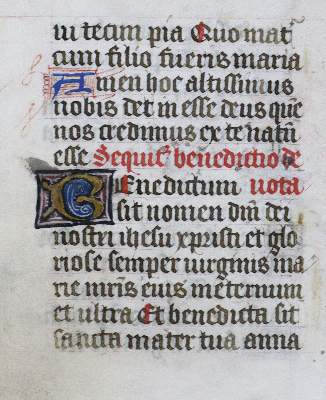 iu tecim pia Quo mat
cum filio fueris maria
Amen hoc altissimus
nobis det in esse deus quē
nos credimus ex te natū
esse Sequit̉ benedictio de
Benedictum uota
sit nomen dm̄ dei
nostri ihesu xpristi et glo
riose semper uirginis ma
rie mr̄is eius in eternum
et ultra Et benedicta sit
sancta mater tua anna